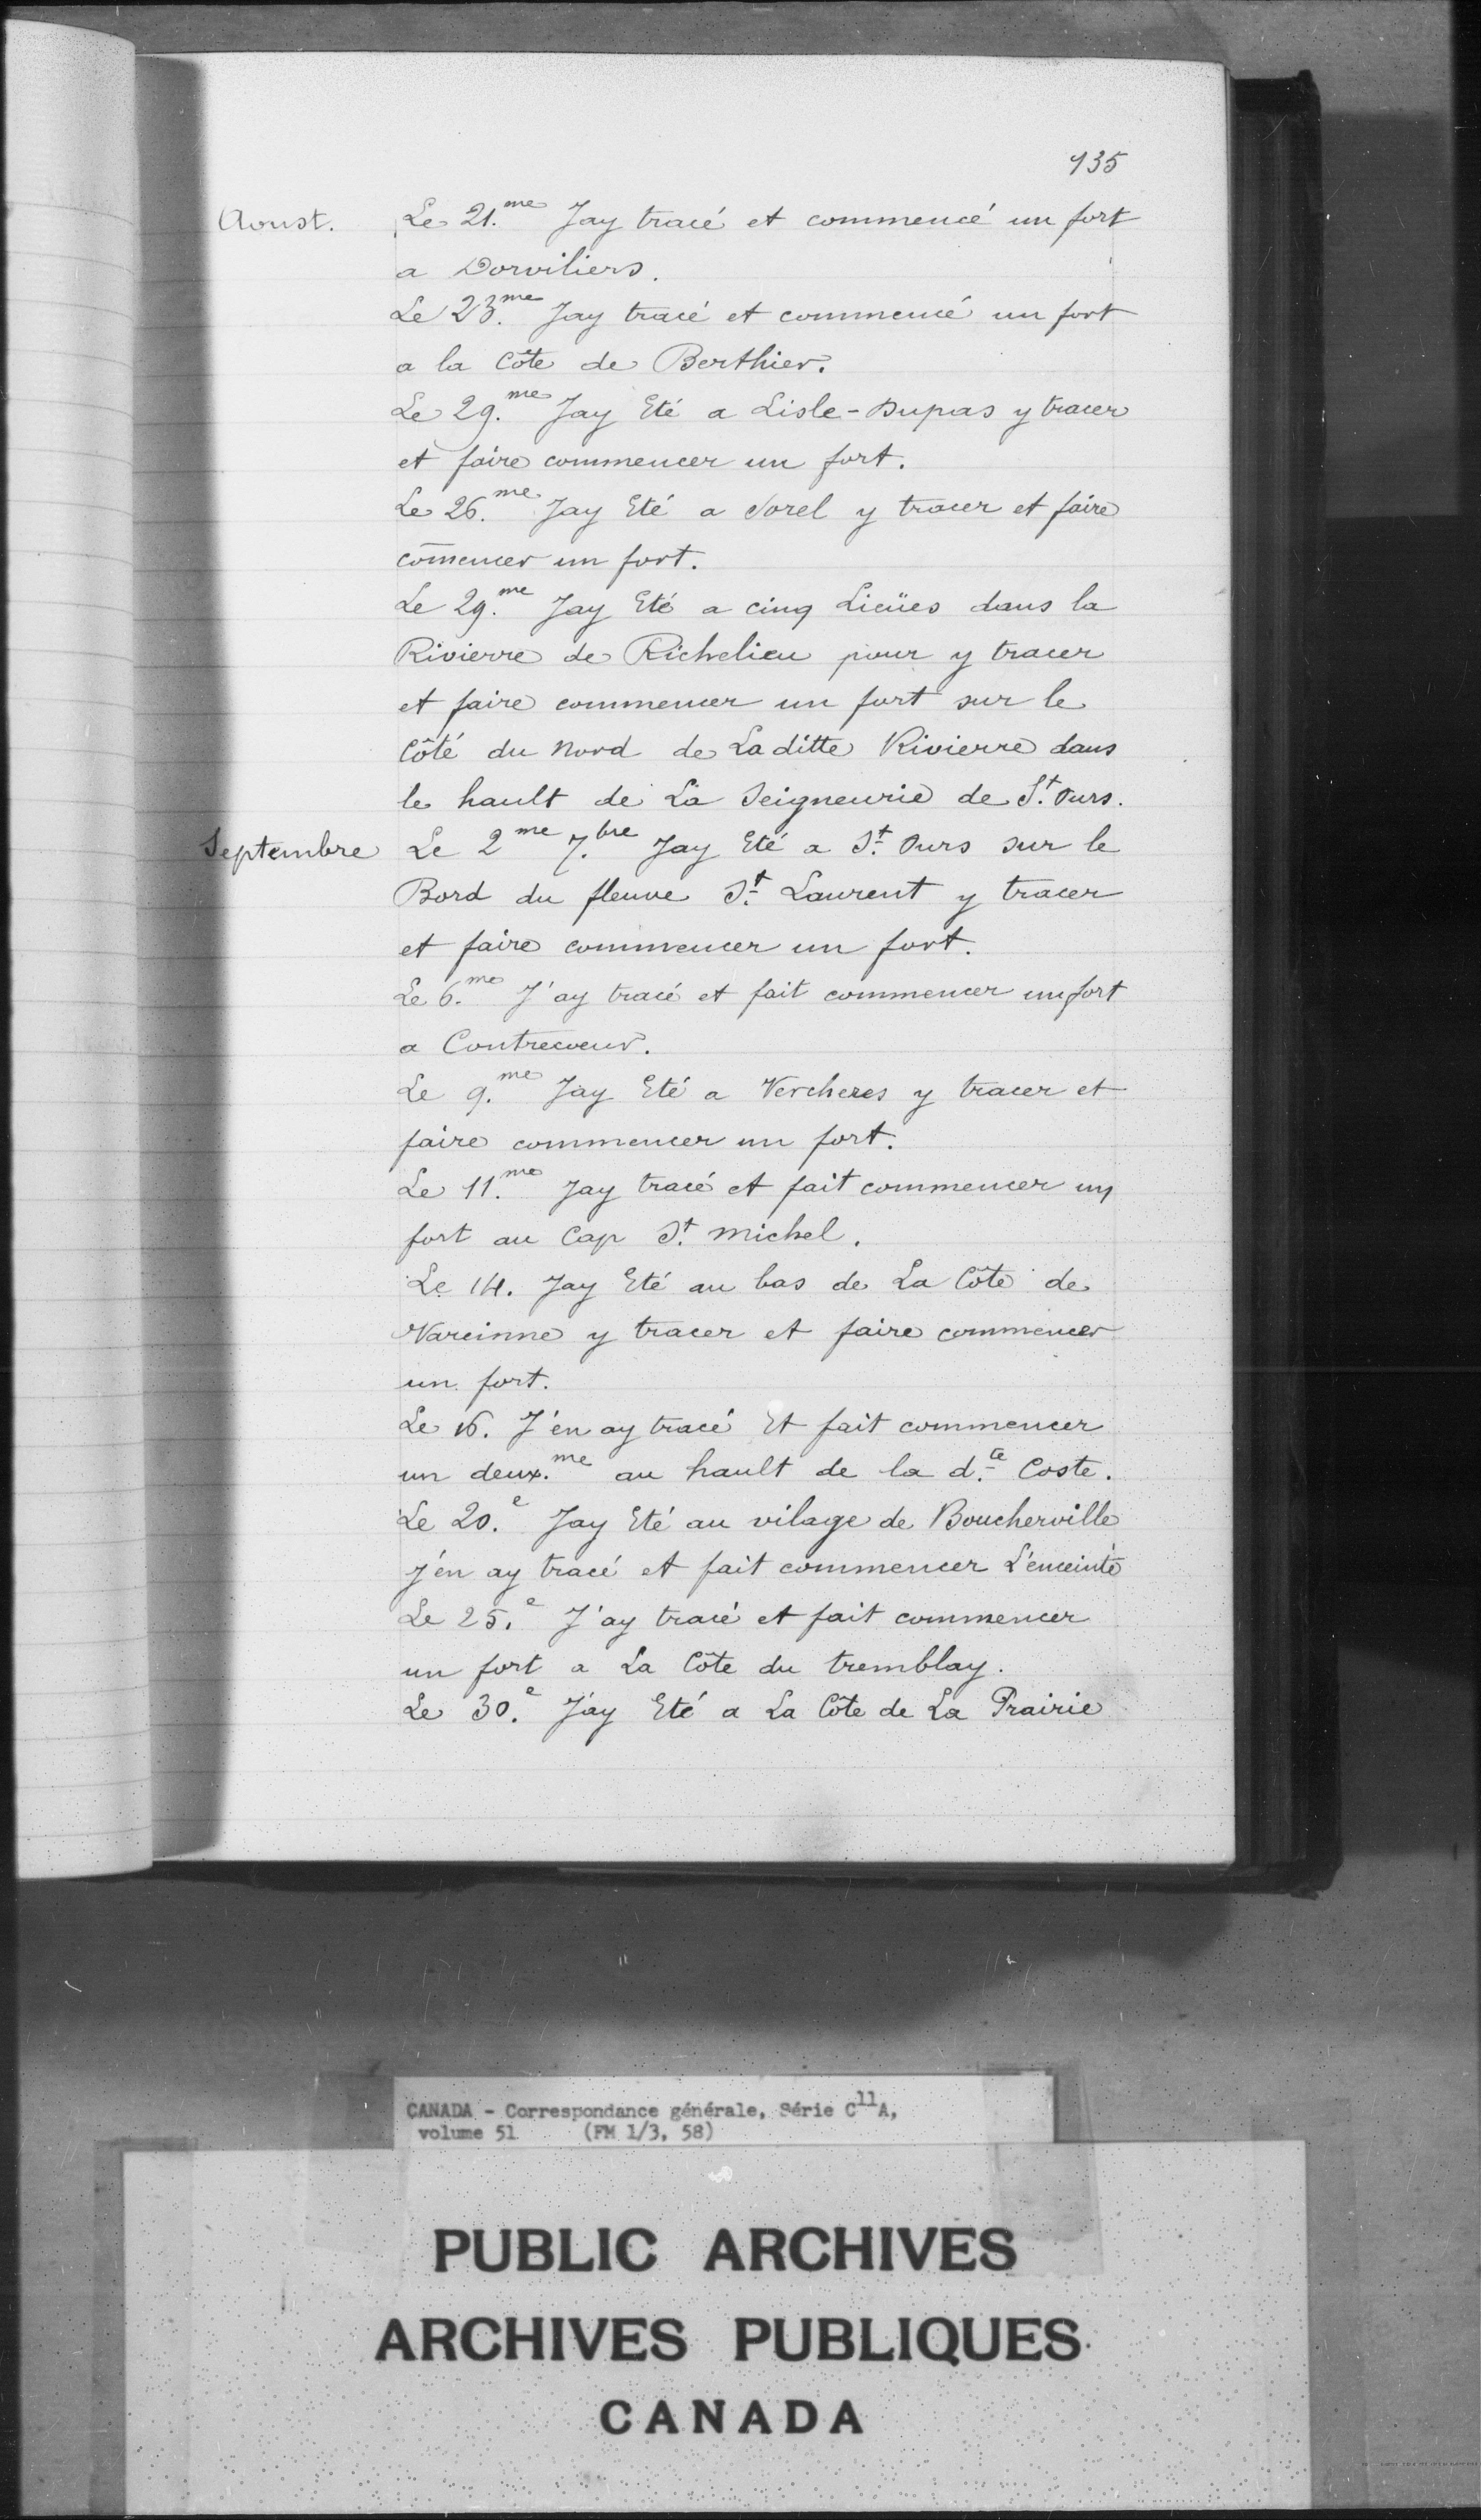 135
Aoust. Le 21.me Jay tracé et commencé un fort
a Dorviliers.
Le 23.me Jay tracé et commencé un fort
a la Côte de Berthier.
Le 29.me Jay Eté a Lisle-Dupas y tracer
et faire commencer un fort.
Le 26.me Jay Eté a Sorel y tracer et faire
com̄encer un fort.
Le 29.me Jay Eté a cinq Lieües dans la
Rivierre de Richelieu pour y tracer
et faire commencer un fort sur le
Côté du Nord de Laditte Rivierre dans
le hault de La Seigneurie de St. Ours.
Septembre Le 2me 7.bre Jay Eté a St. Ours sur le
Bord du fleuve St. Laurent y tracer
et faire commencer un fort.
Le 6.me J'ay tracé et fait commencer un fort
a Contrecoeur.
Le 9.me Jay Eté a Vercheres y tracer et
faire commencer un fort.
Le 11.me Jay tracé et fait commencer un
fort au Cap St. Michel.
Le 14. Jay Eté au bas de La Côte de
Vareinne y tracer et faire commencer
un fort.
Le 16. J'en ay tracé Et fait commencer
un deux.me au hault de la d.te Coste.
Le 20.e Jay Eté au vilage de Boucherville
j'en ay tracé et fait commencer L'enceinte
Le 25.e J'ay tracé et fait commencer
un fort a La Côte du tremblay.
Le 30.e J'ay Eté a La Côte de La Prairie
CANADA - Correspondance générale, Série C11A,
volume 51 (FM 1/3, 58)
PUBLIC ARCHIVES
ARCHIVES PUBLIQUES
CANADA